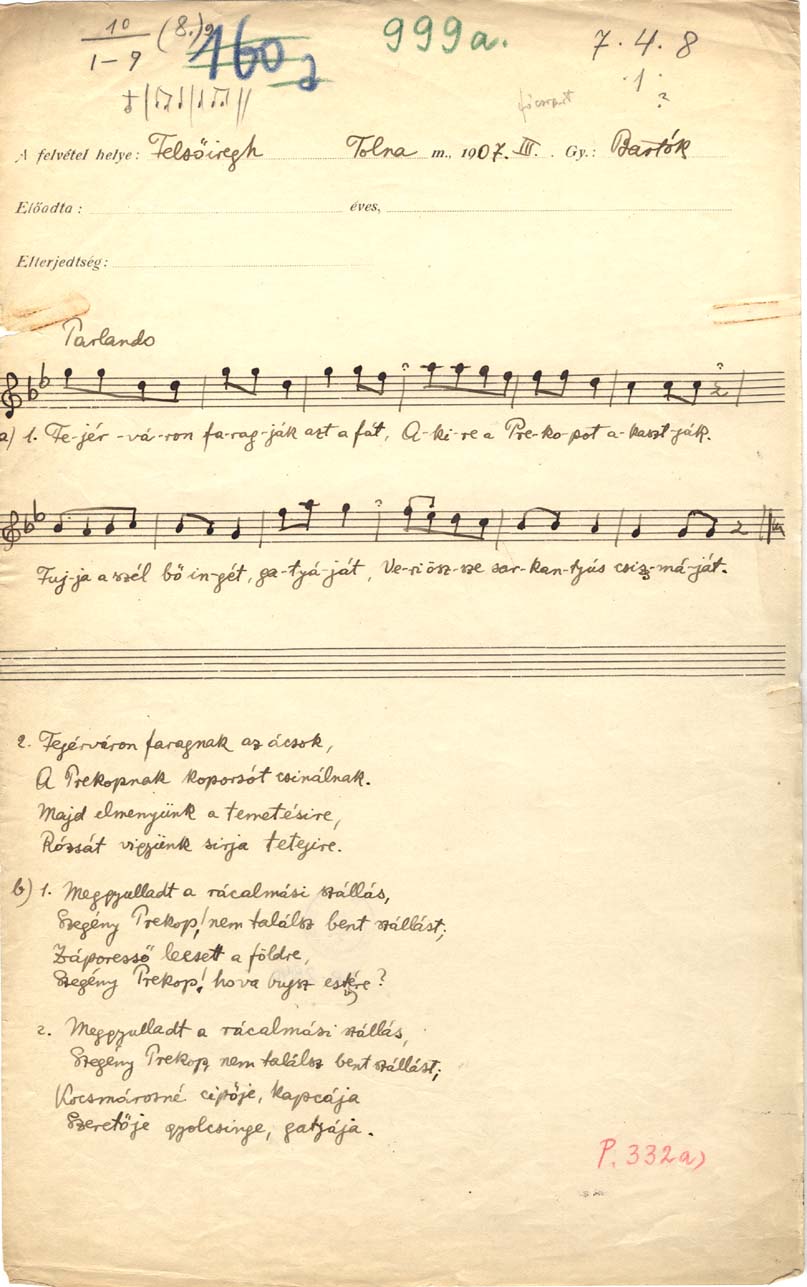 10 (8.) 9 160 a 999a. 7 . 4 . 8
1 – 9 . 1 . ?
A felvétel helye: Felsőiregh Tolna m., 1907. III. Gy.: Bartók
Előadta: éves,
Elterjedtség:
Parlando
a) 1. Fe-jér-vá-ron fa-rag-ják azt a fát, A-ki-re a Pre-ko-pot a-kaszt-ják.
Fuj-ja a szél bő in-gét, ga-tyá-ját, Ve-ri ösz-sze sar-kan-tyús csiz-má-ját.
2. Fejérváron faragnak az ácsok,
A Prekopnak koporsót csinálnak.
Majd elmenyünk a temetésire,
Rózsát vigyünk sirja tetejire.
b) 1. Meggyulladt a rácalmási szállás,
Szegény Prekop! nem találsz bent szállást;
Záporesső leesett a földre,
Szegény Prekop! hova bujsz estére?
2. Meggyulladt a rácalmási szállás,
Szegény Prekop, nem találsz bent szállást;
Kocsmárosné cipője, kapcája
Szeretője gyolcsinge, gatyája.
P. 332a)